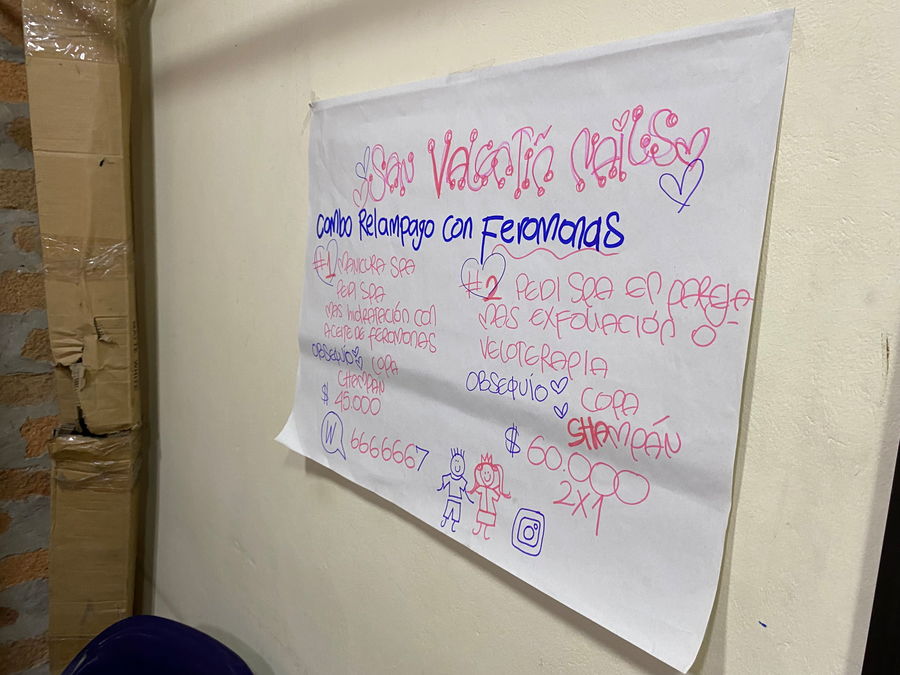 SAN VALENTIN NAILS
combo Relampago con Feromonas
#1 MANICURA SPA
PEDI SPA
MAS hidRATACIÓN CON
ACEITE DE FEROMONAS
OBSEQUIO COPA
CHAMPAN
$ 45.000
W 6666667
#2 PEDI SPA EN PAREJA
MAS EXFOLIACIÓN O
VELOTERAPIA
OBSEQUÍO COPA
SHAMPÁN
$ 60.000
2X1